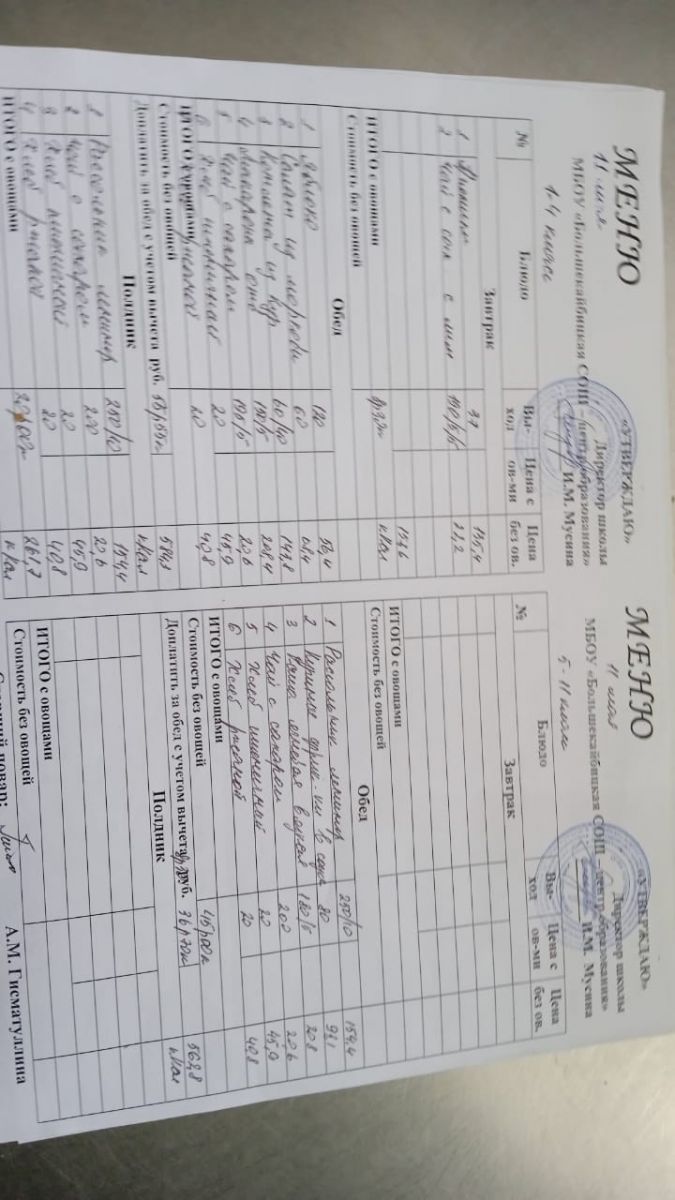 МЕНЮ
11 мая
МБОУ «Большекайбицкая СОШ – центр образования»
1-4 класс
«УТВЕРЖДАЮ»
Директор школы
И.М. Мусина
№ Блюдо Вы-ход Цена с ов-ми Цена без ов.
Завтрак
1 37 135,4
2 Чай с сах с лим 150/5/5 22,2
ИТОГО с овощами 157,6
Стоимость без овощей ккал
Обед
1 Яблоко 120 56,4
2 Салат из моркови 60
3 Котлета из кур 60/40 143,8
4 Макароны отв 150/5 208,4
5 Чай с сахаром 195/5 20,6
Хлеб пшеничный 20 45,9
6 20 40,8
ИТОГО с овощами
Стоимость без овощей 584,1
Доплатить за обед с учетом вычета руб. ккал
Полдник
1 Рассольник ленингр 250/10 154,4
2 Чай с сахаром 200 20,6
3 Хлеб пшеничный 20 45,9
4 Хлеб ржаной 20 40,8
ИТОГО с овощами 261,7
ккал
МЕНЮ
11 мая
МБОУ «Большекайбицкая СОШ – центр образования»
5-11 класс
«УТВЕРЖДАЮ»
Директор школы
И.М. Мусина
№ Блюдо Вы-ход Цена с ов-ми Цена без ов.
Завтрак
ИТОГО с овощами
Стоимость без овощей
Обед
1 Рассольник ленингр 250/10 154,4
2 в соусе 80
3 Каша вязкая 180/5
4 Чай с сахаром 200 20,6
5 Хлеб пшеничный 20 45,9
6 Хлеб ржаной 20 40,8
ИТОГО с овощами
Стоимость без овощей 45р00к 562,8
Доплатить за обед с учетом вычета руб. 36р70к ккал
Полдник
ИТОГО с овощами
Стоимость без овощей
повар: А.М. Гисматуллина